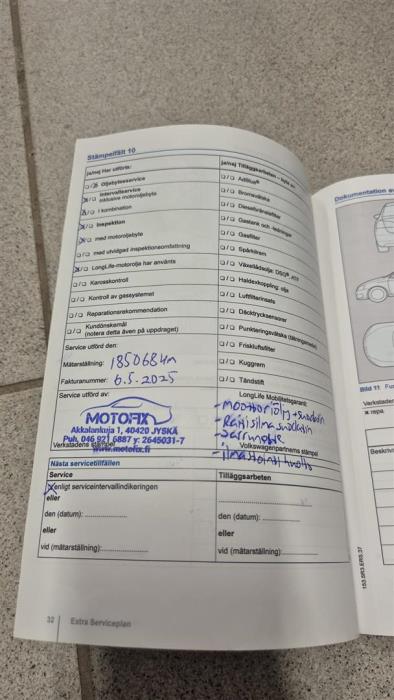 Stämpelfält 10
ja/nej Har utförts:
Oljebytesservice
Intervallservice
inklusive motoroljebyte
I kombination
Inspektion
med motoroljebyte
med utvidgad inspektionsomfattning
LongLife-motorolja har använts
Karosskontroll
Kontroll av gassystemet
Reparationsrekommendation
Kundönskemål
(notera detta även på uppdraget)
Service utförd den:
Mätarställning: 185068km
Fakturanummer: 6.5.2025
Service utförd av:
MOTOFIX
Akkalankuja 1, 40420 JYSKÄ
Puh. 046 921 6887 y: 2645031-7
www.motofix.fi
Verkstadens stämpel
ja/nej Tilläggsarbeten
AdBlue®
Bromsvätska
Dieselbränslefilter
Gastank och
Gasfilter
Spärkhorn
Haldexkoppling: olja
Luftfilterinsats
Däcktrycksensorer
Punkteringsvätska
Friskluftsfilter
Kuggrem
Tändstift
LongLife Mobilitetsgaranti
-Moottoriöljy+suodatin
-Raitisilmasuodatin
Volkswagenpartnerns stämpel
Nästa servicetillfällen
Service
Enligt serviceintervallindikeringen
eller
den (datum):
eller
vid (mätarställning):
Tilläggsarbeten
den (datum):
eller
vid (mätarställning):
32 Extra Serviceplan
Dokumentation
Bild 11
153.5R3.ERS.37